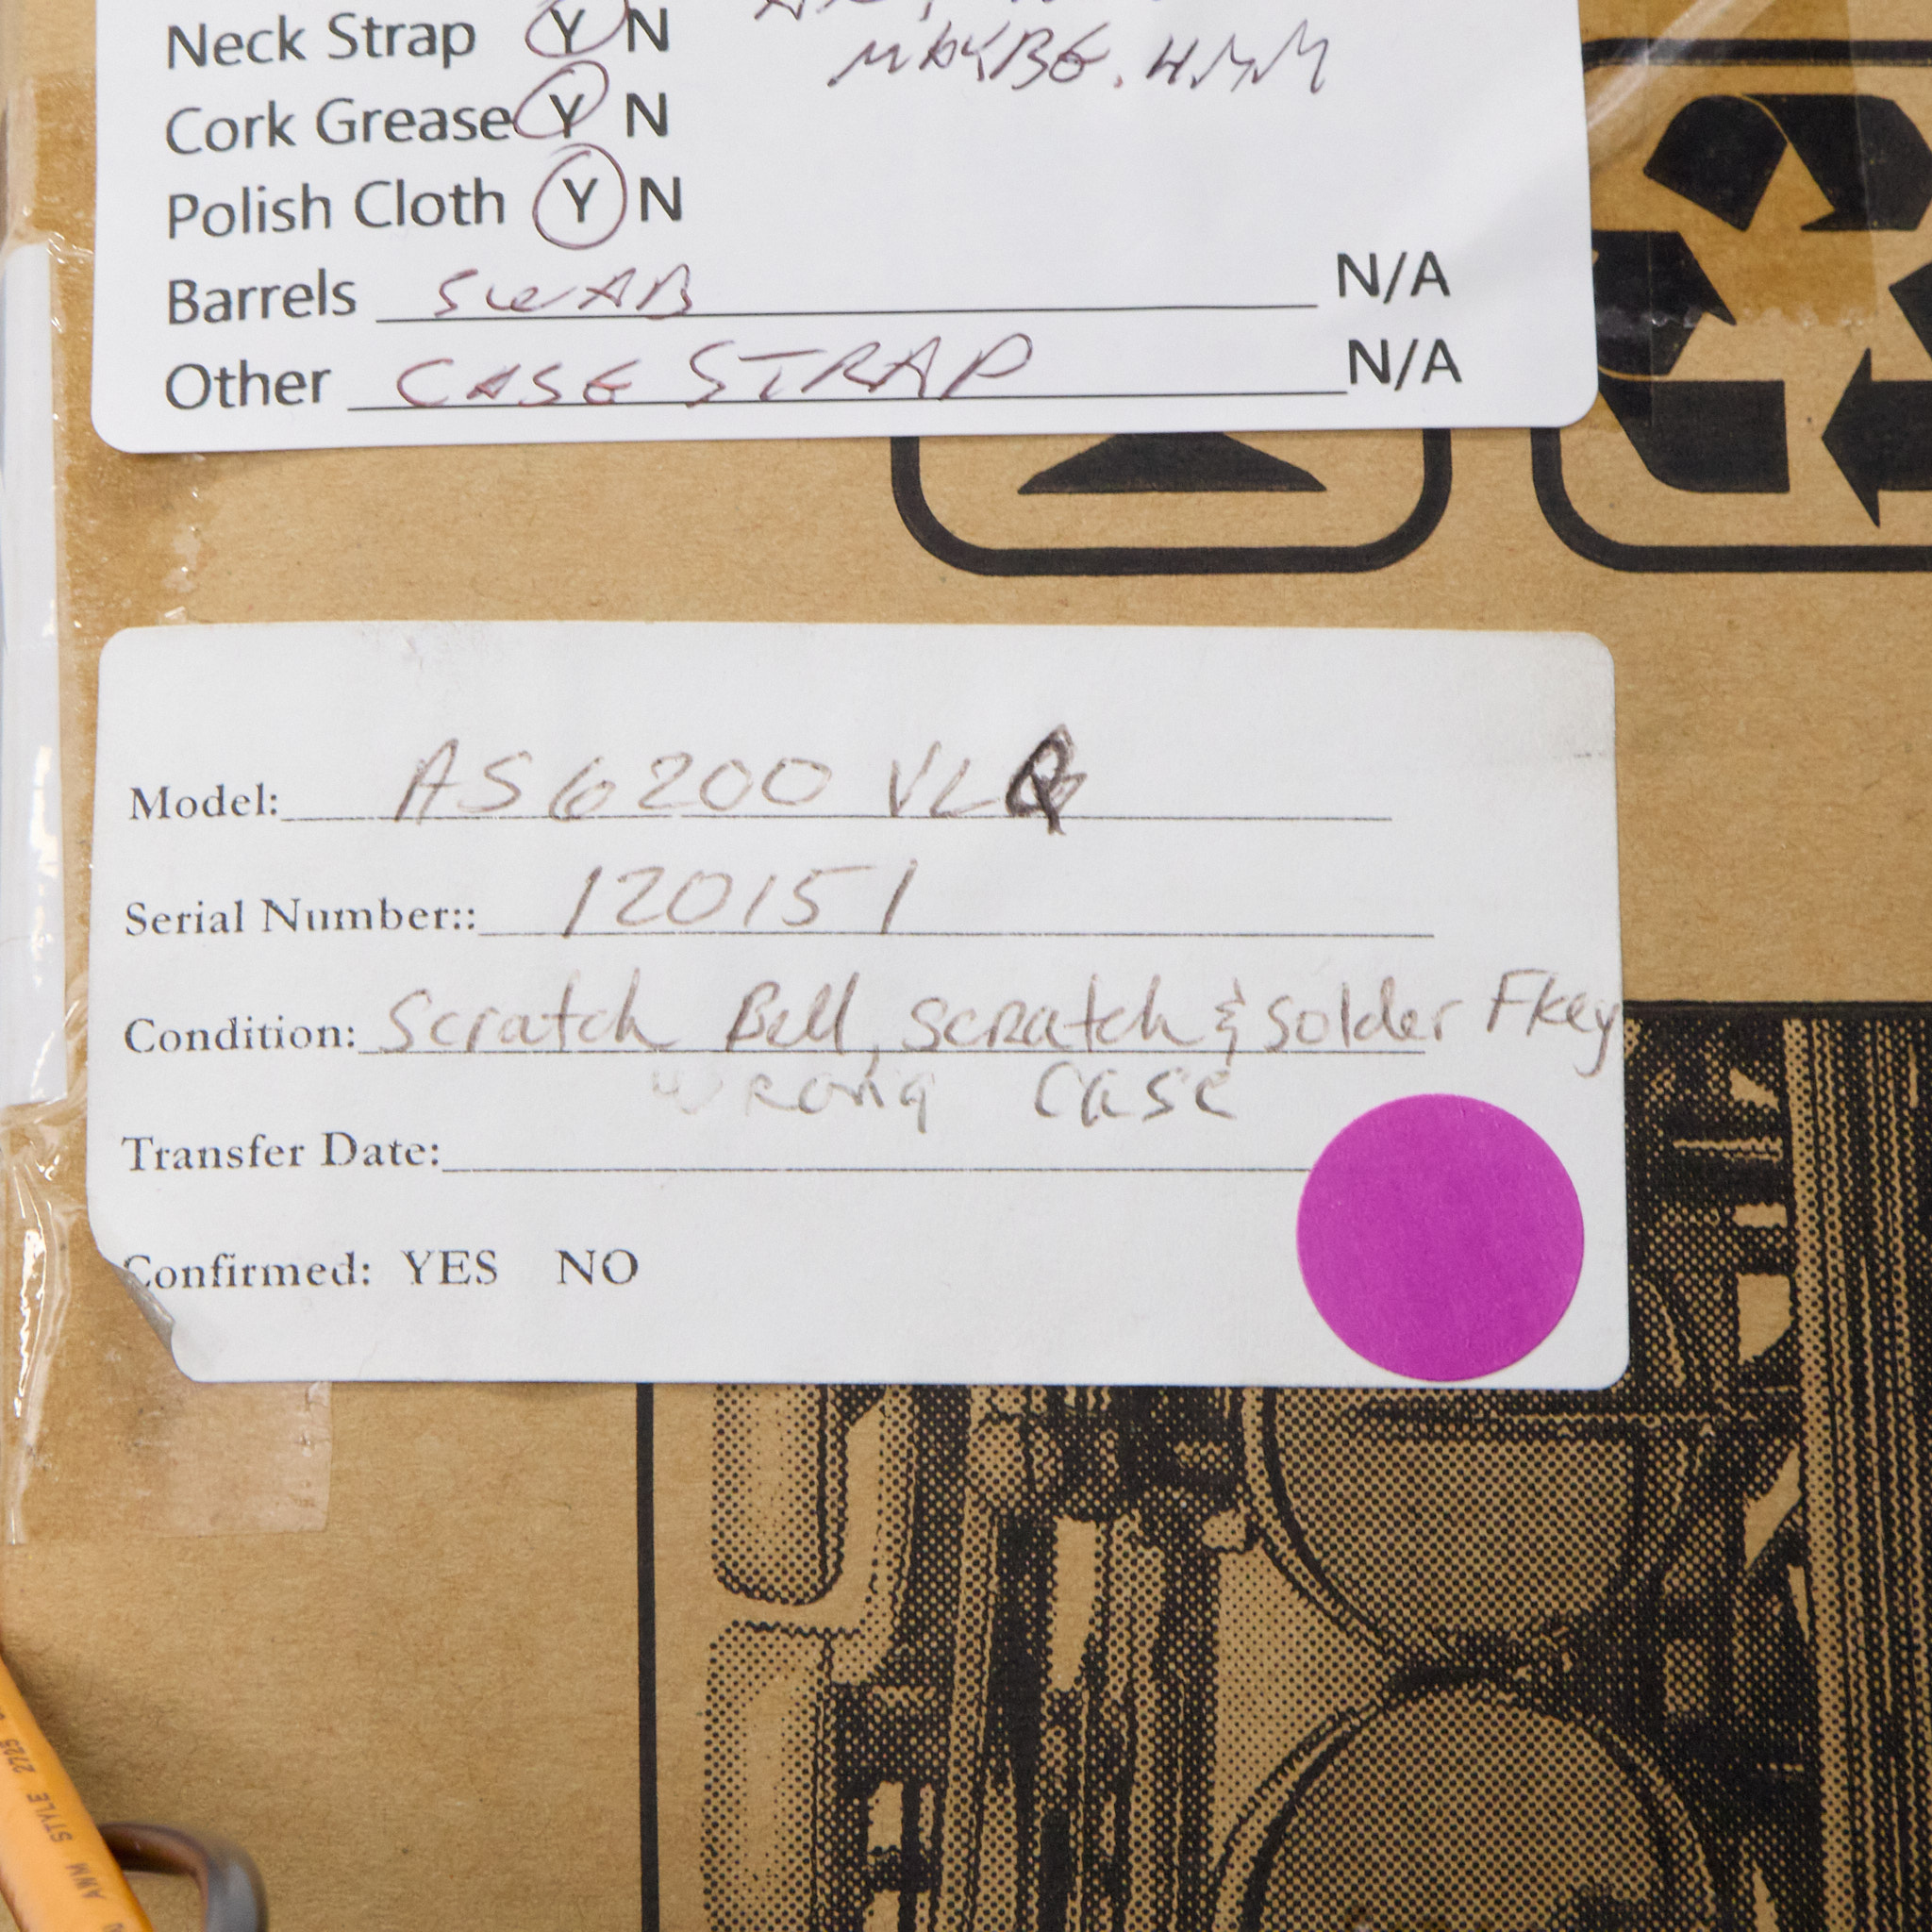 Neck Strap Y N
MAYBE. HMM
Cork Grease Y N
Polish Cloth Y N
Barrels SWAB N/A
Other CASE STRAP N/A
Model: AS6200 VLQ
Serial Number:: 120151
Condition: Scratch Bell, scratch & solder Fkey
Wrong Case
Transfer Date:
Confirmed: YES NO
AWM STYLE 2725